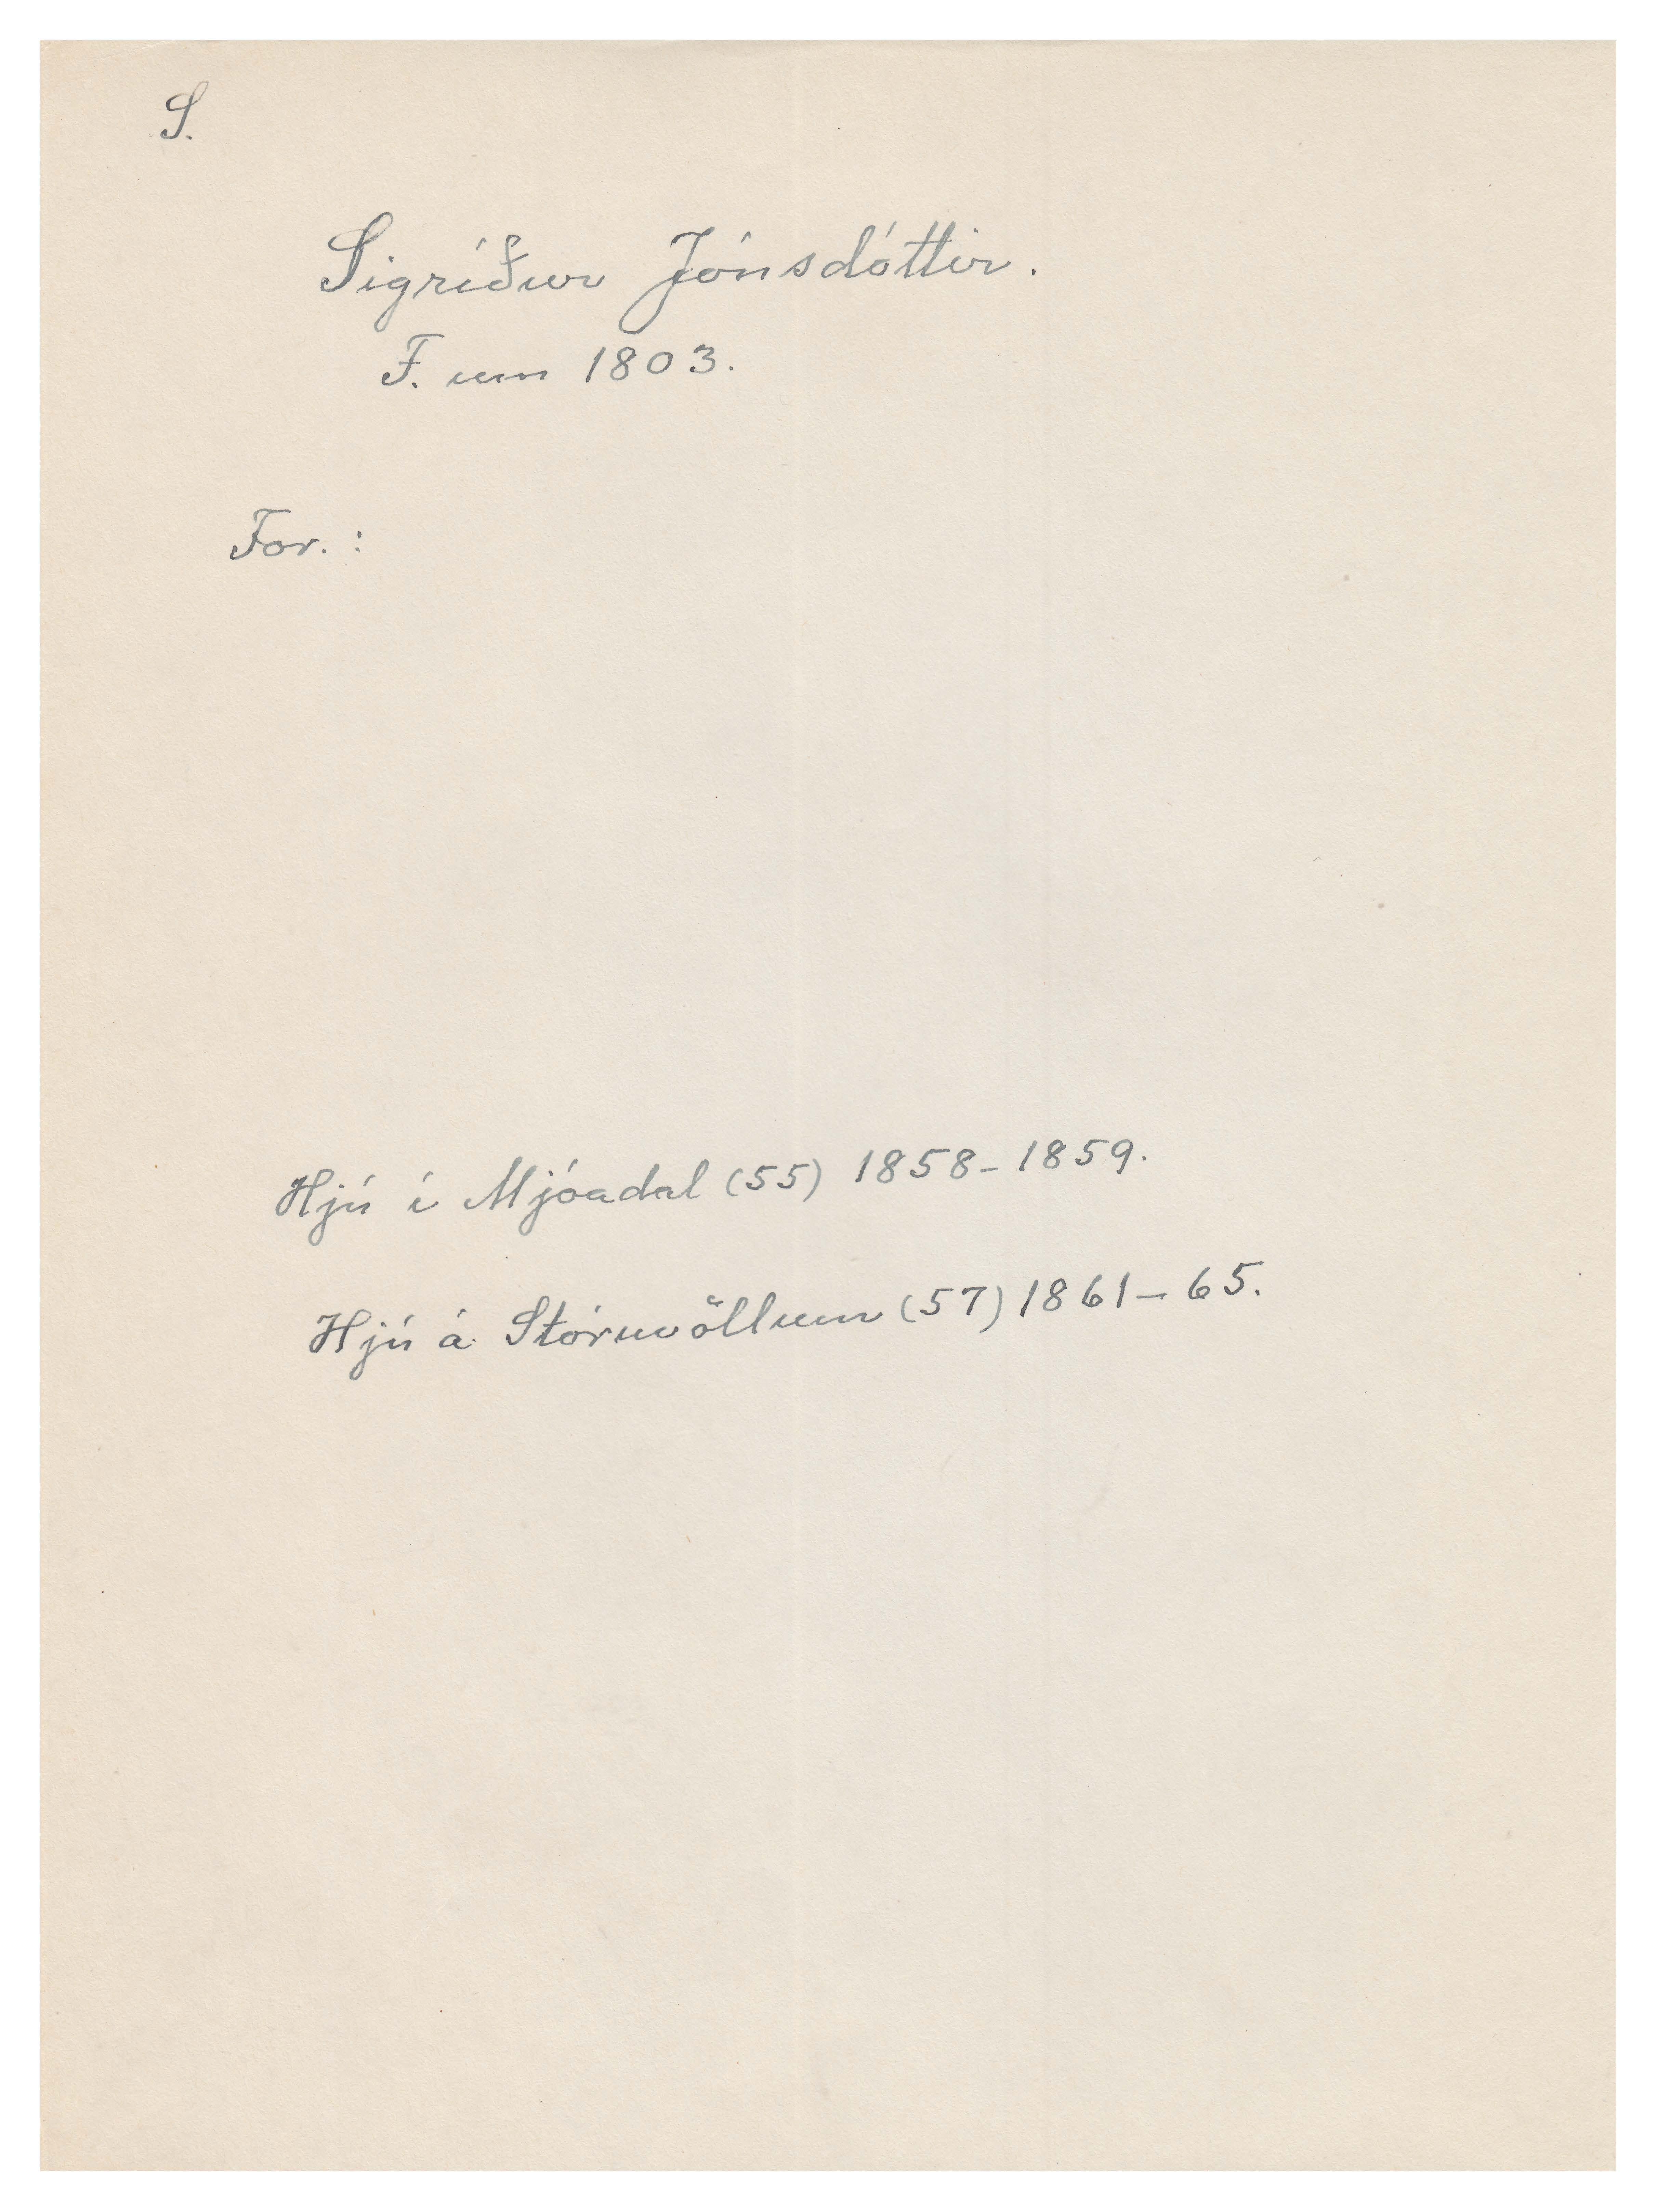 S.
Sigríður Jónsdóttir.
F. um 1803.
For. :
Hjú í Mjóadal (55) 1858-1859.
Hjú á Stóruvöllum (57) 1861-65.